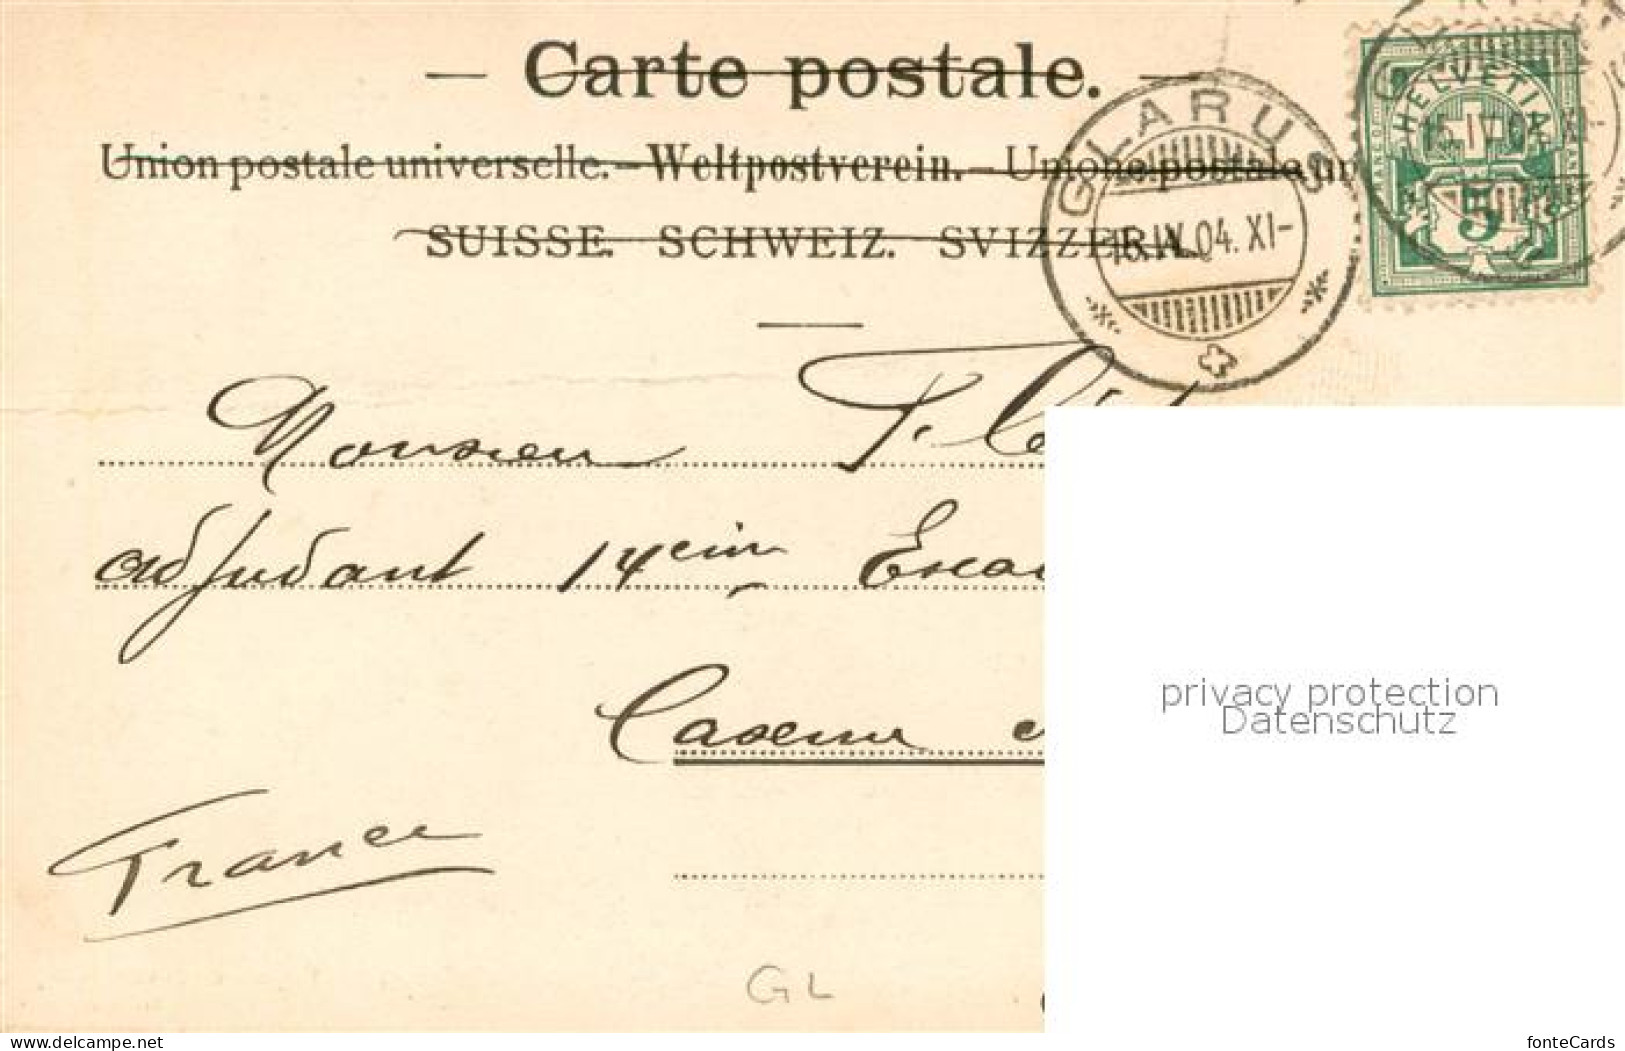 Carte postale.
Union postale universelle. – Weltpostverein. – Unione postale un
SUISSE. SCHWEIZ. SVIZZERA.
GLARUS
HELVETIA
5
Monsieur F.
adjudant 14eme
Caserne
France
GL
privacy protection
Datenschutz
www.delcampe.net
fonteCards